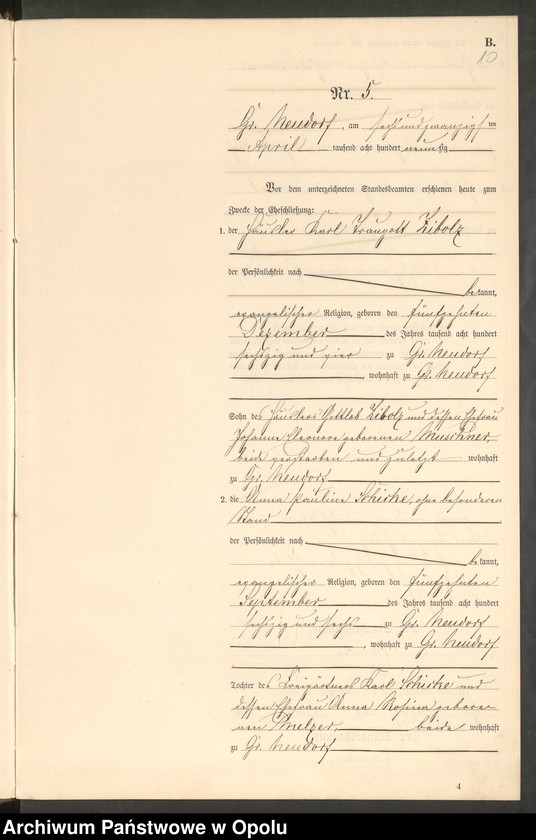 B.
10
Nr. 5.
Gr. Neudorf, am sechsundzwanzigsten
April tausend acht hundert neunzig
Vor dem unterzeichneten Standesbeamten erschienen heute zum
Zwecke der Eheschließung:
1. der Häusler Karl Traugott Zibolz
der Persönlichkeit nach
bekannt,
evangelischer Religion, geboren den fünfzehnten
Dezember des Jahres tausend acht hundert
sechszig und vier zu Gr. Neudorf
, wohnhaft zu Gr. Neudorf
Sohn des Häuslers Gottlob Zibolz und dessen Ehefrau
Johanne Eleonore geborenen Muschner
beide verstorben und zuletzt wohnhaft
zu Gr. Neudorf
2. die Anna Pauline Schirke, ohne besonderen
Stand
der Persönlichkeit nach
bekannt,
evangelischer Religion, geboren den fünfzehnten
September des Jahres tausend acht hundert
sechszig und sechs zu Gr. Neudorf
, wohnhaft zu Gr. Neudorf
Tochter des Freigärtners Karl Schirke und
dessen Ehefrau Anna Rosina gebore-
nen beide wohnhaft
zu Gr. Neudorf
4
Archiwum Państwowe w Opolu